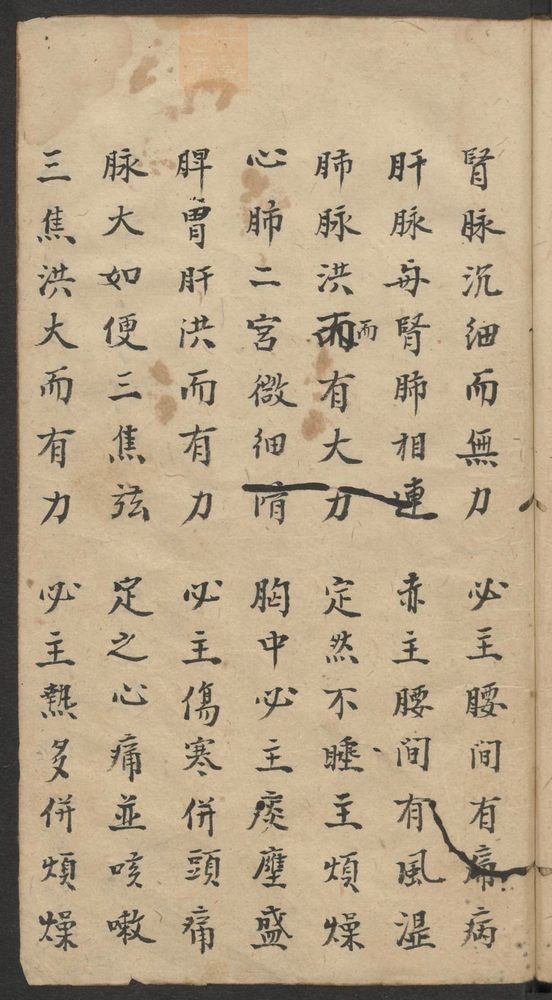 腎脉沉細而無力 必主腰間有痛病
肝脉每腎肺相連 赤主腰間有風湿
肺脉洪而有大力 定然不睡主煩燥
心肺二宮微細 胸中必主痰壅盛
脾胃肝洪而有力 必主傷寒併頭痛
脉大如便三焦弦 定之心痛並咳嗽
三焦洪大而有力 必主熱多併煩燥